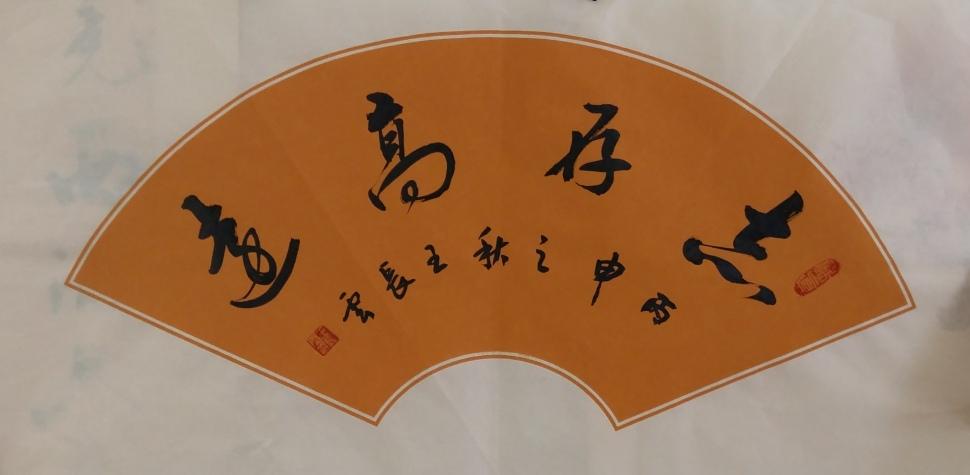 志存高遠
丙申之秋王長雲